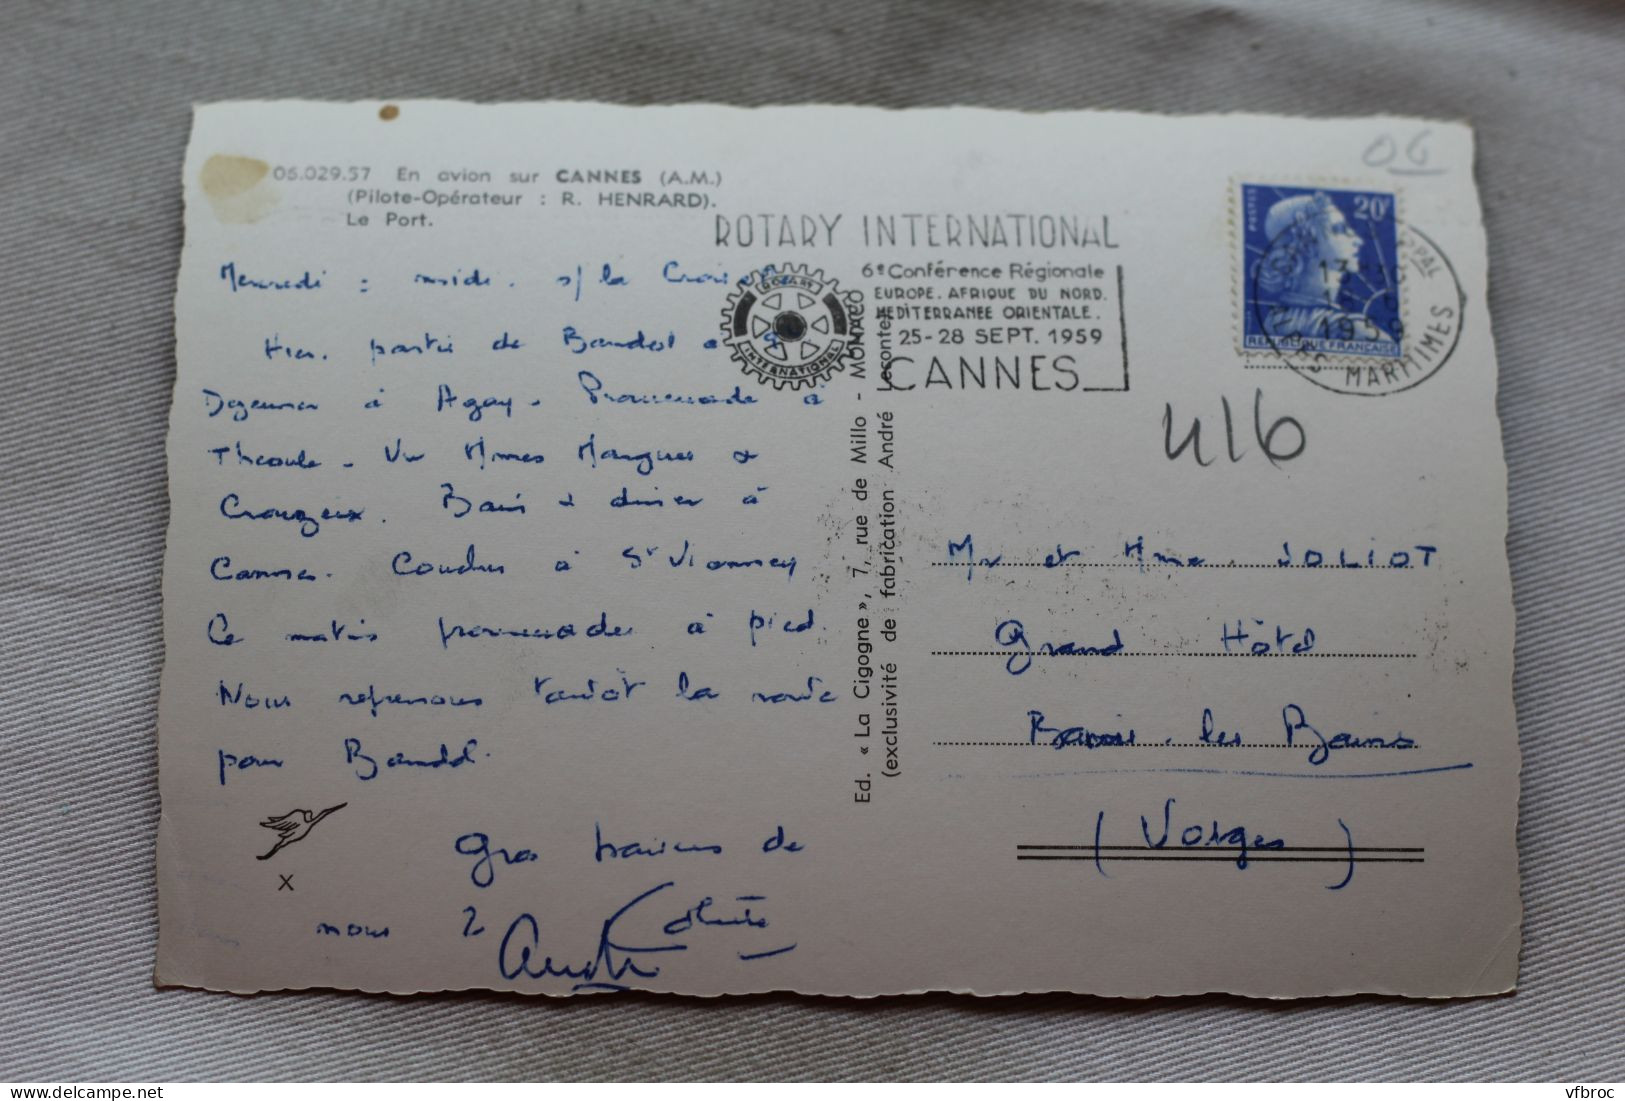 06.029.57 En avion sur CANNES (A.M.)
(Pilote-Opérateur : R. HENRARD).
Le Port.
Mercredi : midi. s/ la Croisette
Hier. partis de Bandol à 9
Dejeuner à Agay - Promenade à
Theoule - Vu Mmes Marguez &
Crouzeix. Bain & diner à
Cannes. Coucher à St Vianney
Ce matin promenade à pied.
Nous reprenons tantôt la route
pour Bandol.
Gros baisers de
nous 2
Colette
André
X
Ed. « La Cigogne », 7, rue de Millo - MONACO
(exclusivité de fabrication André Leconte)
ROTARY INTERNATIONAL
ROTARY
INTERNATIONAL
6e Conférence Régionale
EUROPE. AFRIQUE DU NORD.
MEDITERRANEE ORIENTALE.
25-28 SEPT. 1959
CANNES
06
POSTES
20F
REPUBLIQUE FRANÇAISE
1959
MARITIMES
416
Mr et Mme. JOLIOT
Grand Hôtel
Bains-les-Bains
(Vosges)
vfbroc